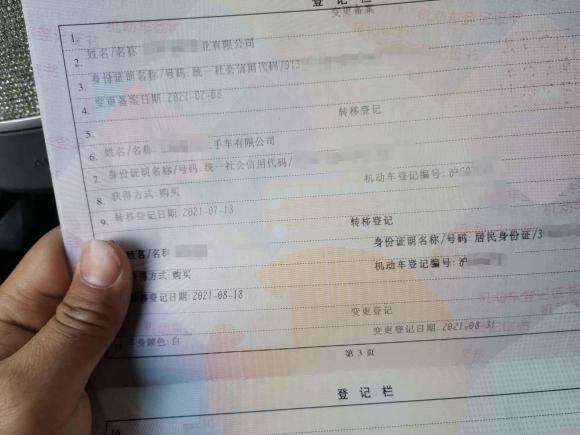 登记栏
1. 变更备案
2. 姓名/名称 业有限公司
3. 身份证明名称/号码:统一社会信用代码/913
4. 变更备案日期:2021-07-08
5. 转移登记
6. 姓名/名称 手车有限公司
7. 身份证明名称/号码:统一社会信用代码/
8. 获得方式:购买 机动车登记编号:沪
9. 转移登记日期:2021-07-13
转移登记
姓名/名称 身份证明名称/号码:居民身份证/3
获得方式:购买 机动车登记编号:沪
转移登记日期:2021-08-18
变更登记
车身颜色:白 变更登记日期:2021-08-31
第3页
登记栏